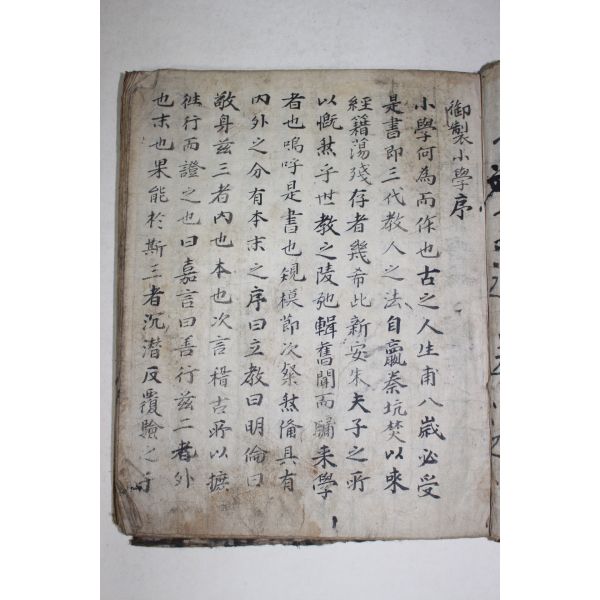 御製小學序
小學何為而作也古之人生甫八歲必受
是書即三代教人之法自嬴秦坑焚以來
經籍蕩殘存者幾希此新安朱夫子之所
以慨然乎世教之陵弛輯舊聞而牖來學
者也嗚呼是書也規模節次粲然備具有
內外之分有本末之序曰立教曰明倫曰
敬身玆三者內也本也次言稽古所以摭
往行而證之也曰嘉言曰善行玆二者外
也末也果能於斯三者沉潜反覆驗之于